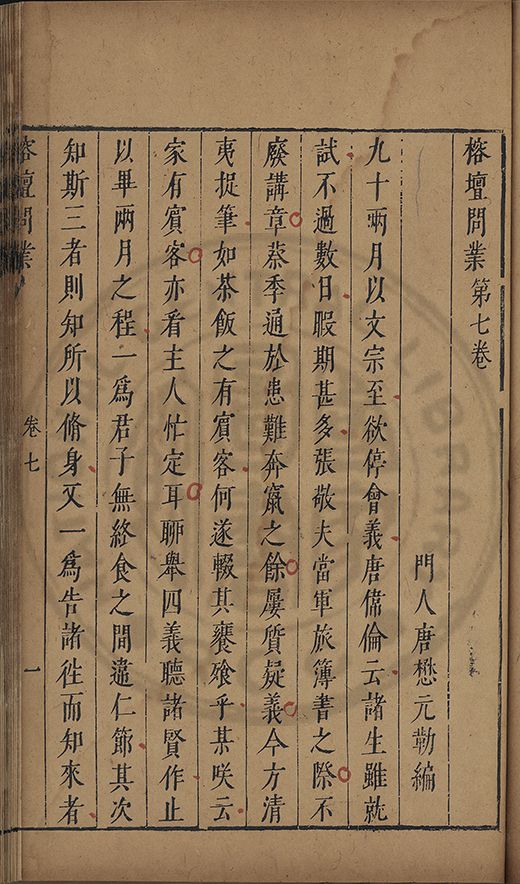 榕壇問業第七卷
門人唐懋元勒編
九十兩月以文宗至欲停會義唐偹倫云諸生雖就
試不過數日暇期甚多張敬夫當軍旅簿書之際不
廢講章蔡季通於患難奔竄之餘屢質疑義今方清
夷捉筆如茶飯之有賓客何遂輟其饔飱乎某咲云
家有賓客亦看主人忙定耳聊舉四義聽諸賢作止
以畢兩月之程一為君子無終食之間違仁節其次
知斯三者則知所以脩身又一為告諸徃而知來者
榕壇問業
卷七
一